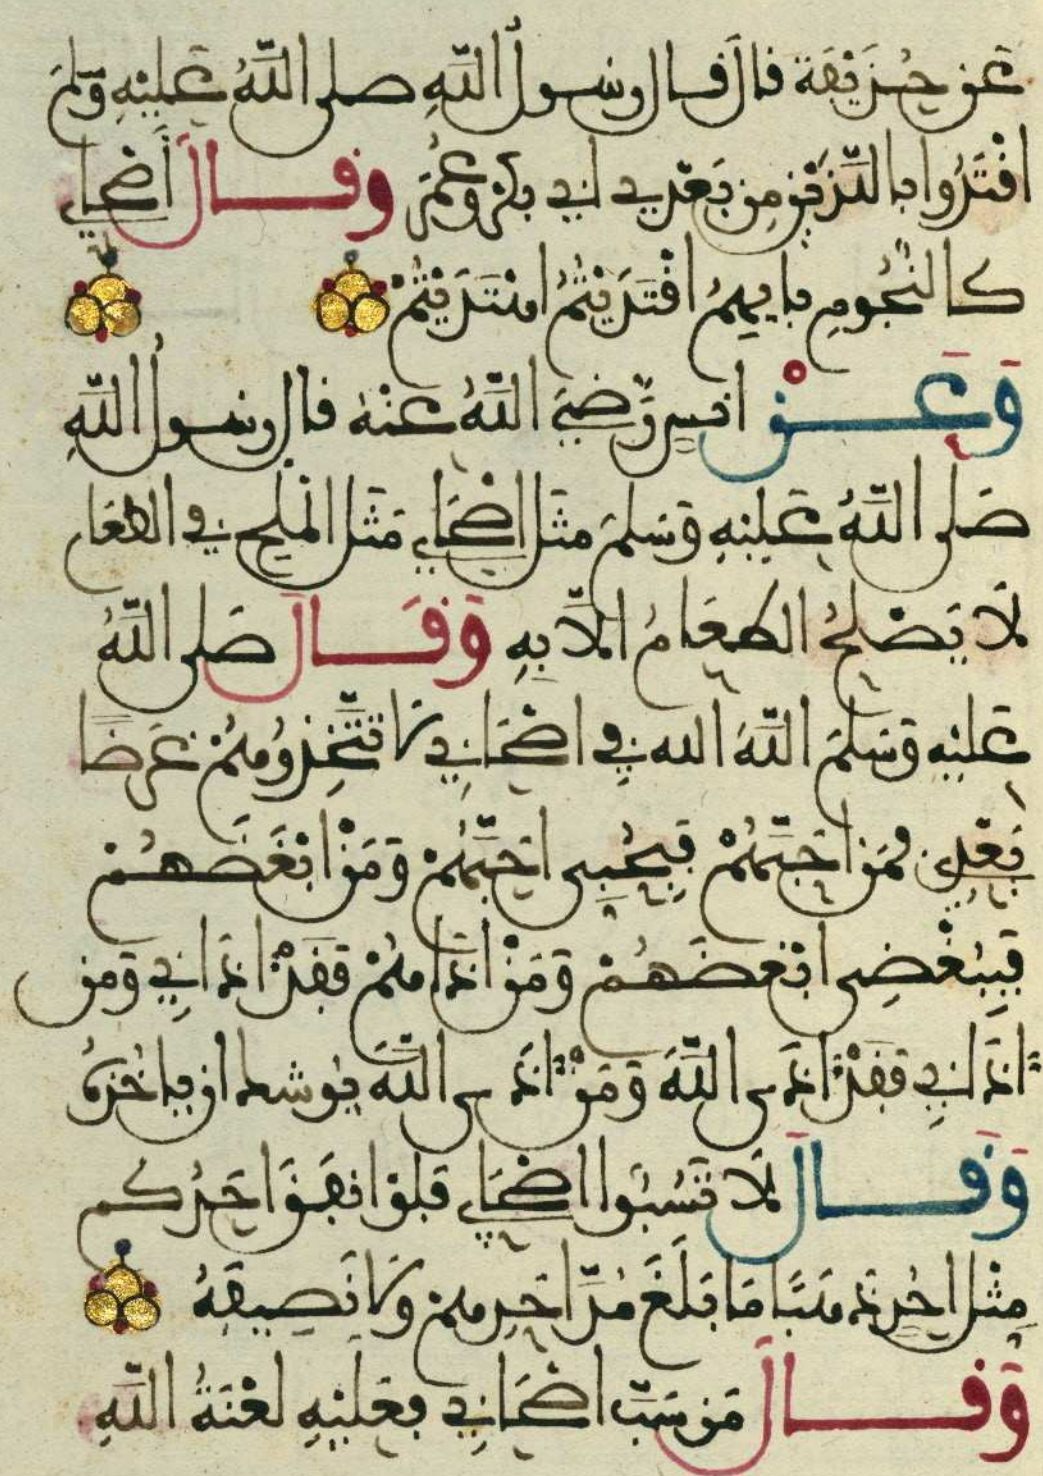 عَن حُذَيْفَة قالَ قال رسولُ اللّهِ صلى اللّهُ عَلَيْهِ وَسَلمَ
اقْتَدُوا بِالّذَيْنِ مِن بَعْدِي أبي بَكْرٍ وعُمَرَ وقالَ أصْحابي
كالنُّجُومِ بأيهِمُ اقْتَدَيْتُمُ اهْتَدَيْتُمْ
وَعَنْ انسٍ رَّضيَ اللّهُ عَنْهُ قال رسولُ اللّهِ
صَلى اللّهُ عَلَيْهِ وَسَلمَ مثَل اصْحَابي مَثَل المْلحِ في الطعَامِ
لَا يَصْلحُ الطعَامُ الّا بِهِ وَقَالَ صَلى اللّهُ
عَلَيْهِ وَسَلمَ اللّهَ الله في اصْحَابي لَا تتَّخِذوهُمْ غَرَضًا
بَعْدِي فمَن احَبَّهُمْ فَبِحُبِي احَبَّهُمْ وَمَنْ ابْغَضَهُمْ
فَبِبُغْضِي ابْغَضَهُمْ وَمَنْ اذَاهُمْ فَقَدْ اذَاني وَمَن
اذَاني فَقَدْ اذَى اللّهَ وَمَنْ اذَى اللّهَ يُوشك ان ياخُذَهُ
وَقَالَ لَا تَسُبُّوا اصْحَابي فَلَوْ انفَقَ احَدُكم
مِثْل احُدٍ ذَهَبًا مَا بَلَغَ مُدَّ احَدِهِمْ وَلَا نَصِيفَهُ
وَقَالَ مَن سَبَّ اصْحَابي فعَلَيْهِ لَعْنَةُ اللّهِ